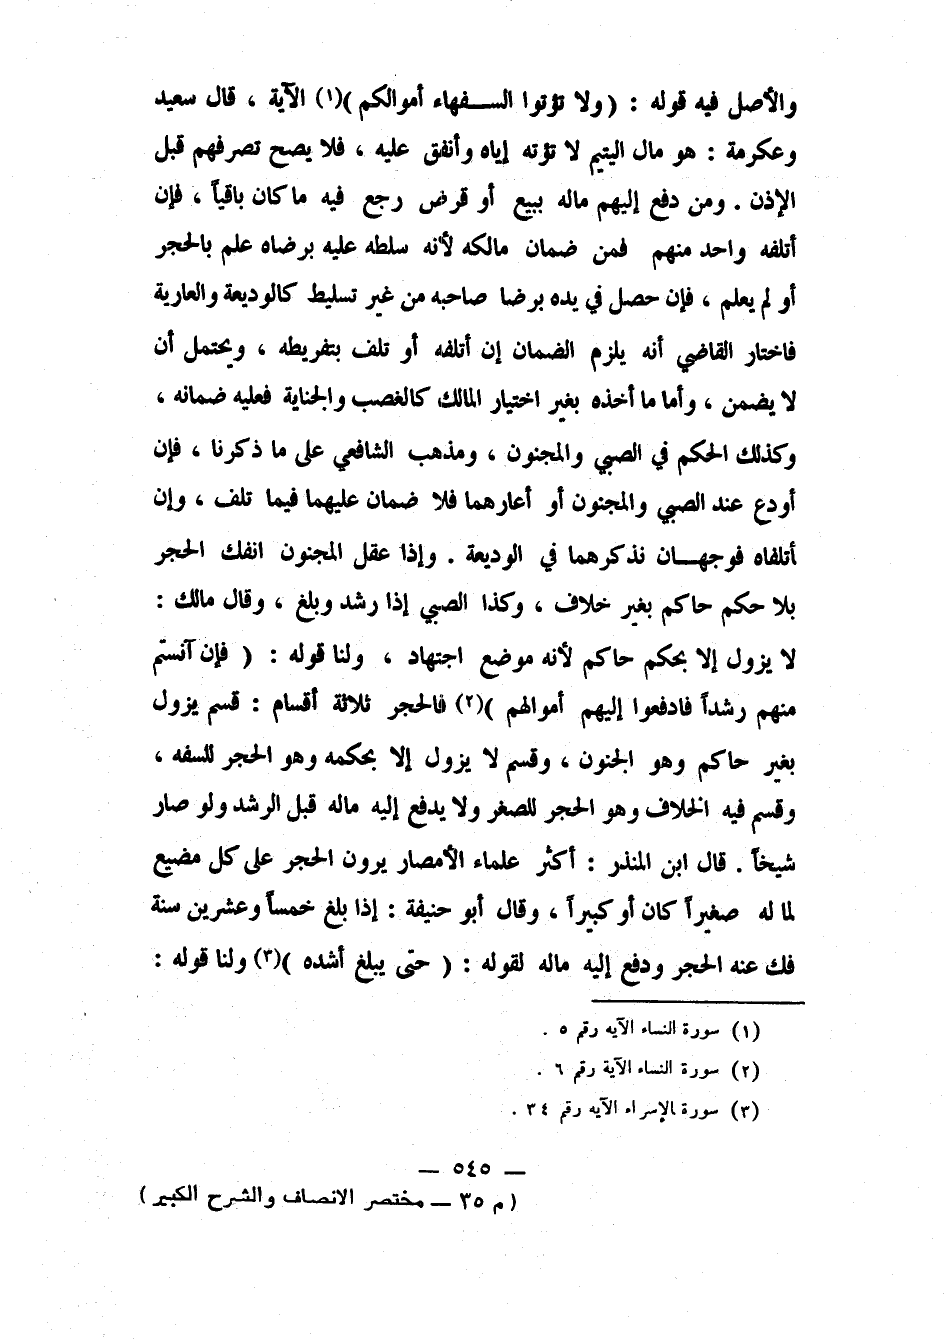 والأصل فيه قوله : ( ولا تؤتوا الســفهاء أموالكم )(١) الآية ، قال سعيد
وعكرمة : هو مال اليتيم لا تؤته إياه وأنفق عليه ، فلا يصح تصرفهم قبل
الإذن . ومن دفع إليهم ماله ببيع أو قرض رجع فيه ما كان باقياً ، فإن
أتلفه واحد منهم فمن ضمان مالكه لأنه سلطه عليه برضاه علم بالحجر
أو لم يعلم ، فإن حصل في يده برضا صاحبه من غير تسليط كالوديعة والعارية
فاختار القاضي أنه يلزم الضمان إن أتلفه أو تلف بتفريطه ، ويحتمل أن
لا يضمن ، وأما ما أخذه بغير اختيار المالك كالغصب والجناية فعليه ضمانه ،
وكذلك الحكم في الصبي والمجنون ، ومذهب الشافعي على ما ذكرنا ، فإن
أودع عند الصبي والمجنون أو أعارهما فلا ضمان عليهما فيما تلف ، وإن
أتلفاه فوجهــان نذكرهما في الوديعة . وإذا عقل المجنون انفك الحجر
بلا حكم حاكم بغير خلاف ، وكذا الصبي إذا رشد وبلغ ، وقال مالك :
لا يزول إلا بحكم حاكم لأنه موضع اجتهاد ، ولنا قوله : ( فإن آنستم
منهم رشداً فادفعوا إليهم أموالهم )(٢) فالحجر ثلاثة أقسام : قسم يزول
بغير حاكم وهو الجنون ، وقسم لا يزول إلا بحكمه وهو الحجر للسفه ،
وقسم فيه الخلاف وهو الحجر للصغر ولا يدفع إليه ماله قبل الرشد ولو صار
شيخاً . قال ابن المنذر : أكثر علماء الأمصار يرون الحجر على كل مضيع
لما له صغيراً كان أو كبيراً ، وقال أبو حنيفة : إذا بلغ خمساً وعشرين سنة
فك عنه الحجر ودفع إليه ماله لقوله : ( حتى يبلغ أشده )(٣) ولنا قوله :
(١) سورة النساء الآيه رقم ٥ .
(٢) سورة النساء الآية رقم ٦ .
(٣) سورة الإسراء الآيه رقم ٣٤ .
— ٥٤٥ —
( م ٣٥ — مختصر الانصاف والشرح الكبير )